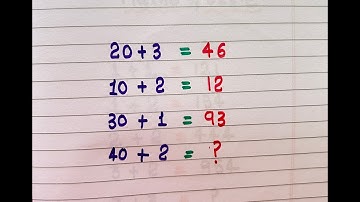 20 + 3 = 46
10 + 2 = 12
30 + 1 = 93
40 + 2 = ?